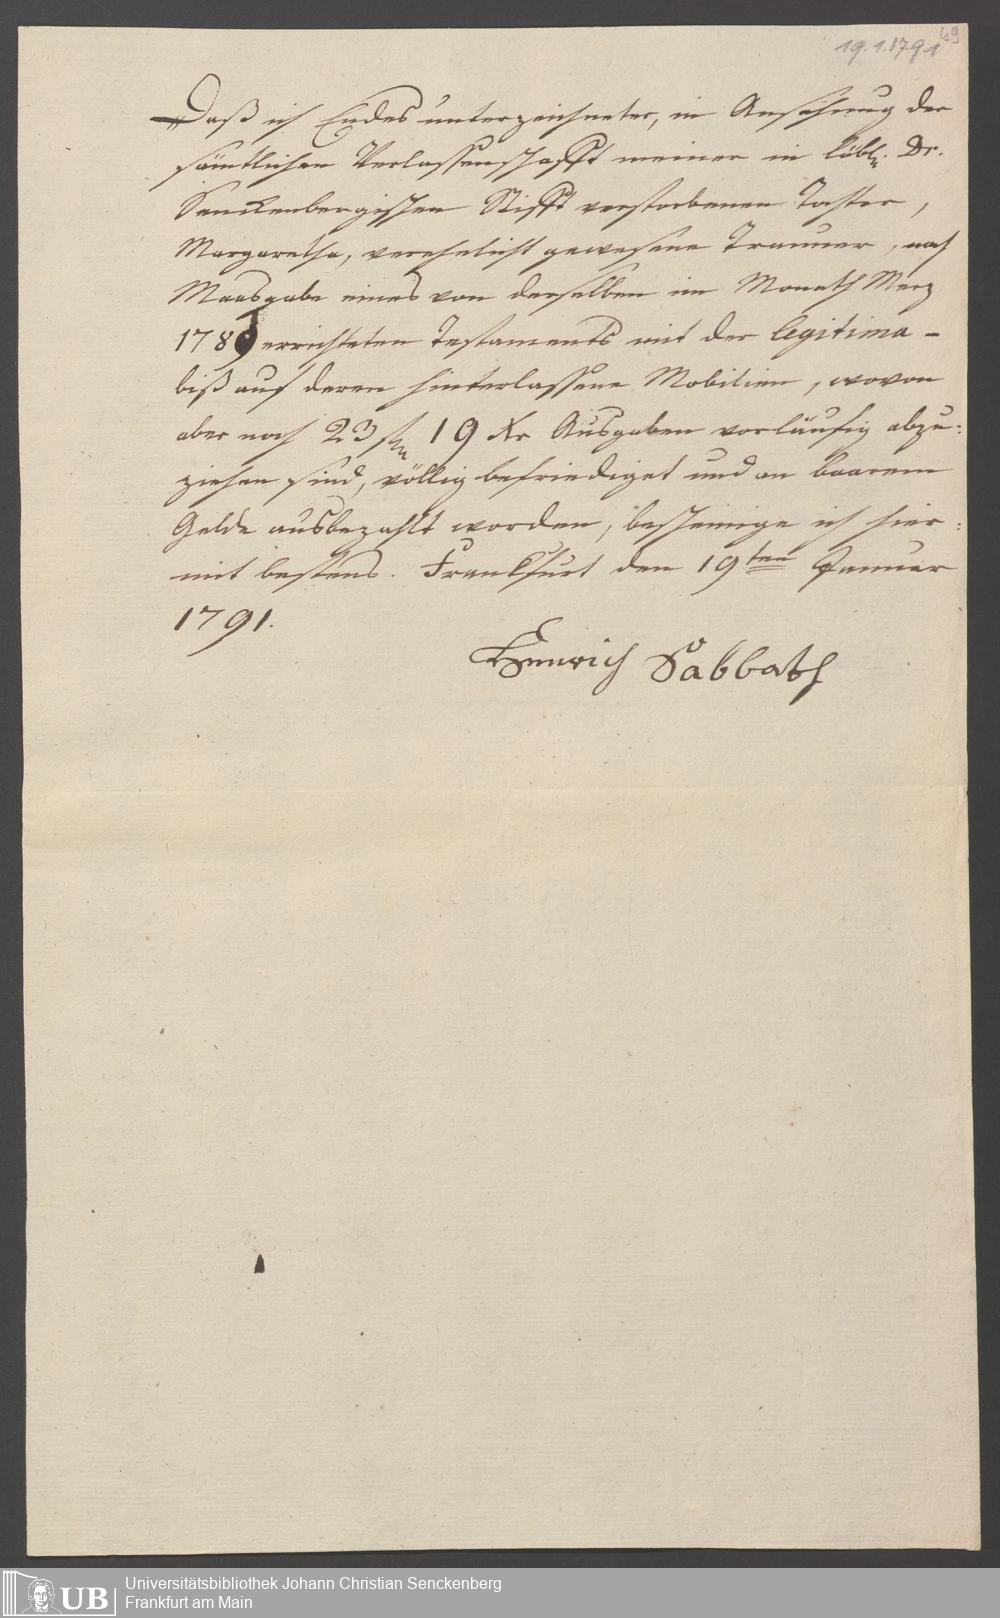 49
19.1.1791
Daß ich Endes unterzeichneter, in Ansehung der
sämtlichen Verlassenschafft meiner in löbl. Dr.
Senckenbergischen Stifft verstorbenen Tochter,
Margaretha, verehelicht gewesene Trauner, nach
Maasgabe eines von derselben im Monath Merz
1789 errichteten Testaments mit der legitima -
biß auf deren hinterlassene Mobilien, wovon
aber noch 23 fl. 19 Xr Ausgaben vorläufig abzu:
ziehen sind, völlig befriediget und an baarem
Gelde ausbezahlt worden, bescheinige ich hier:
mit bestens. Franckfurt den 19ten Januar
1791.
Henrich Sabbath
UB
Universitätsbibliothek Johann Christian Senckenberg
Frankfurt am Main